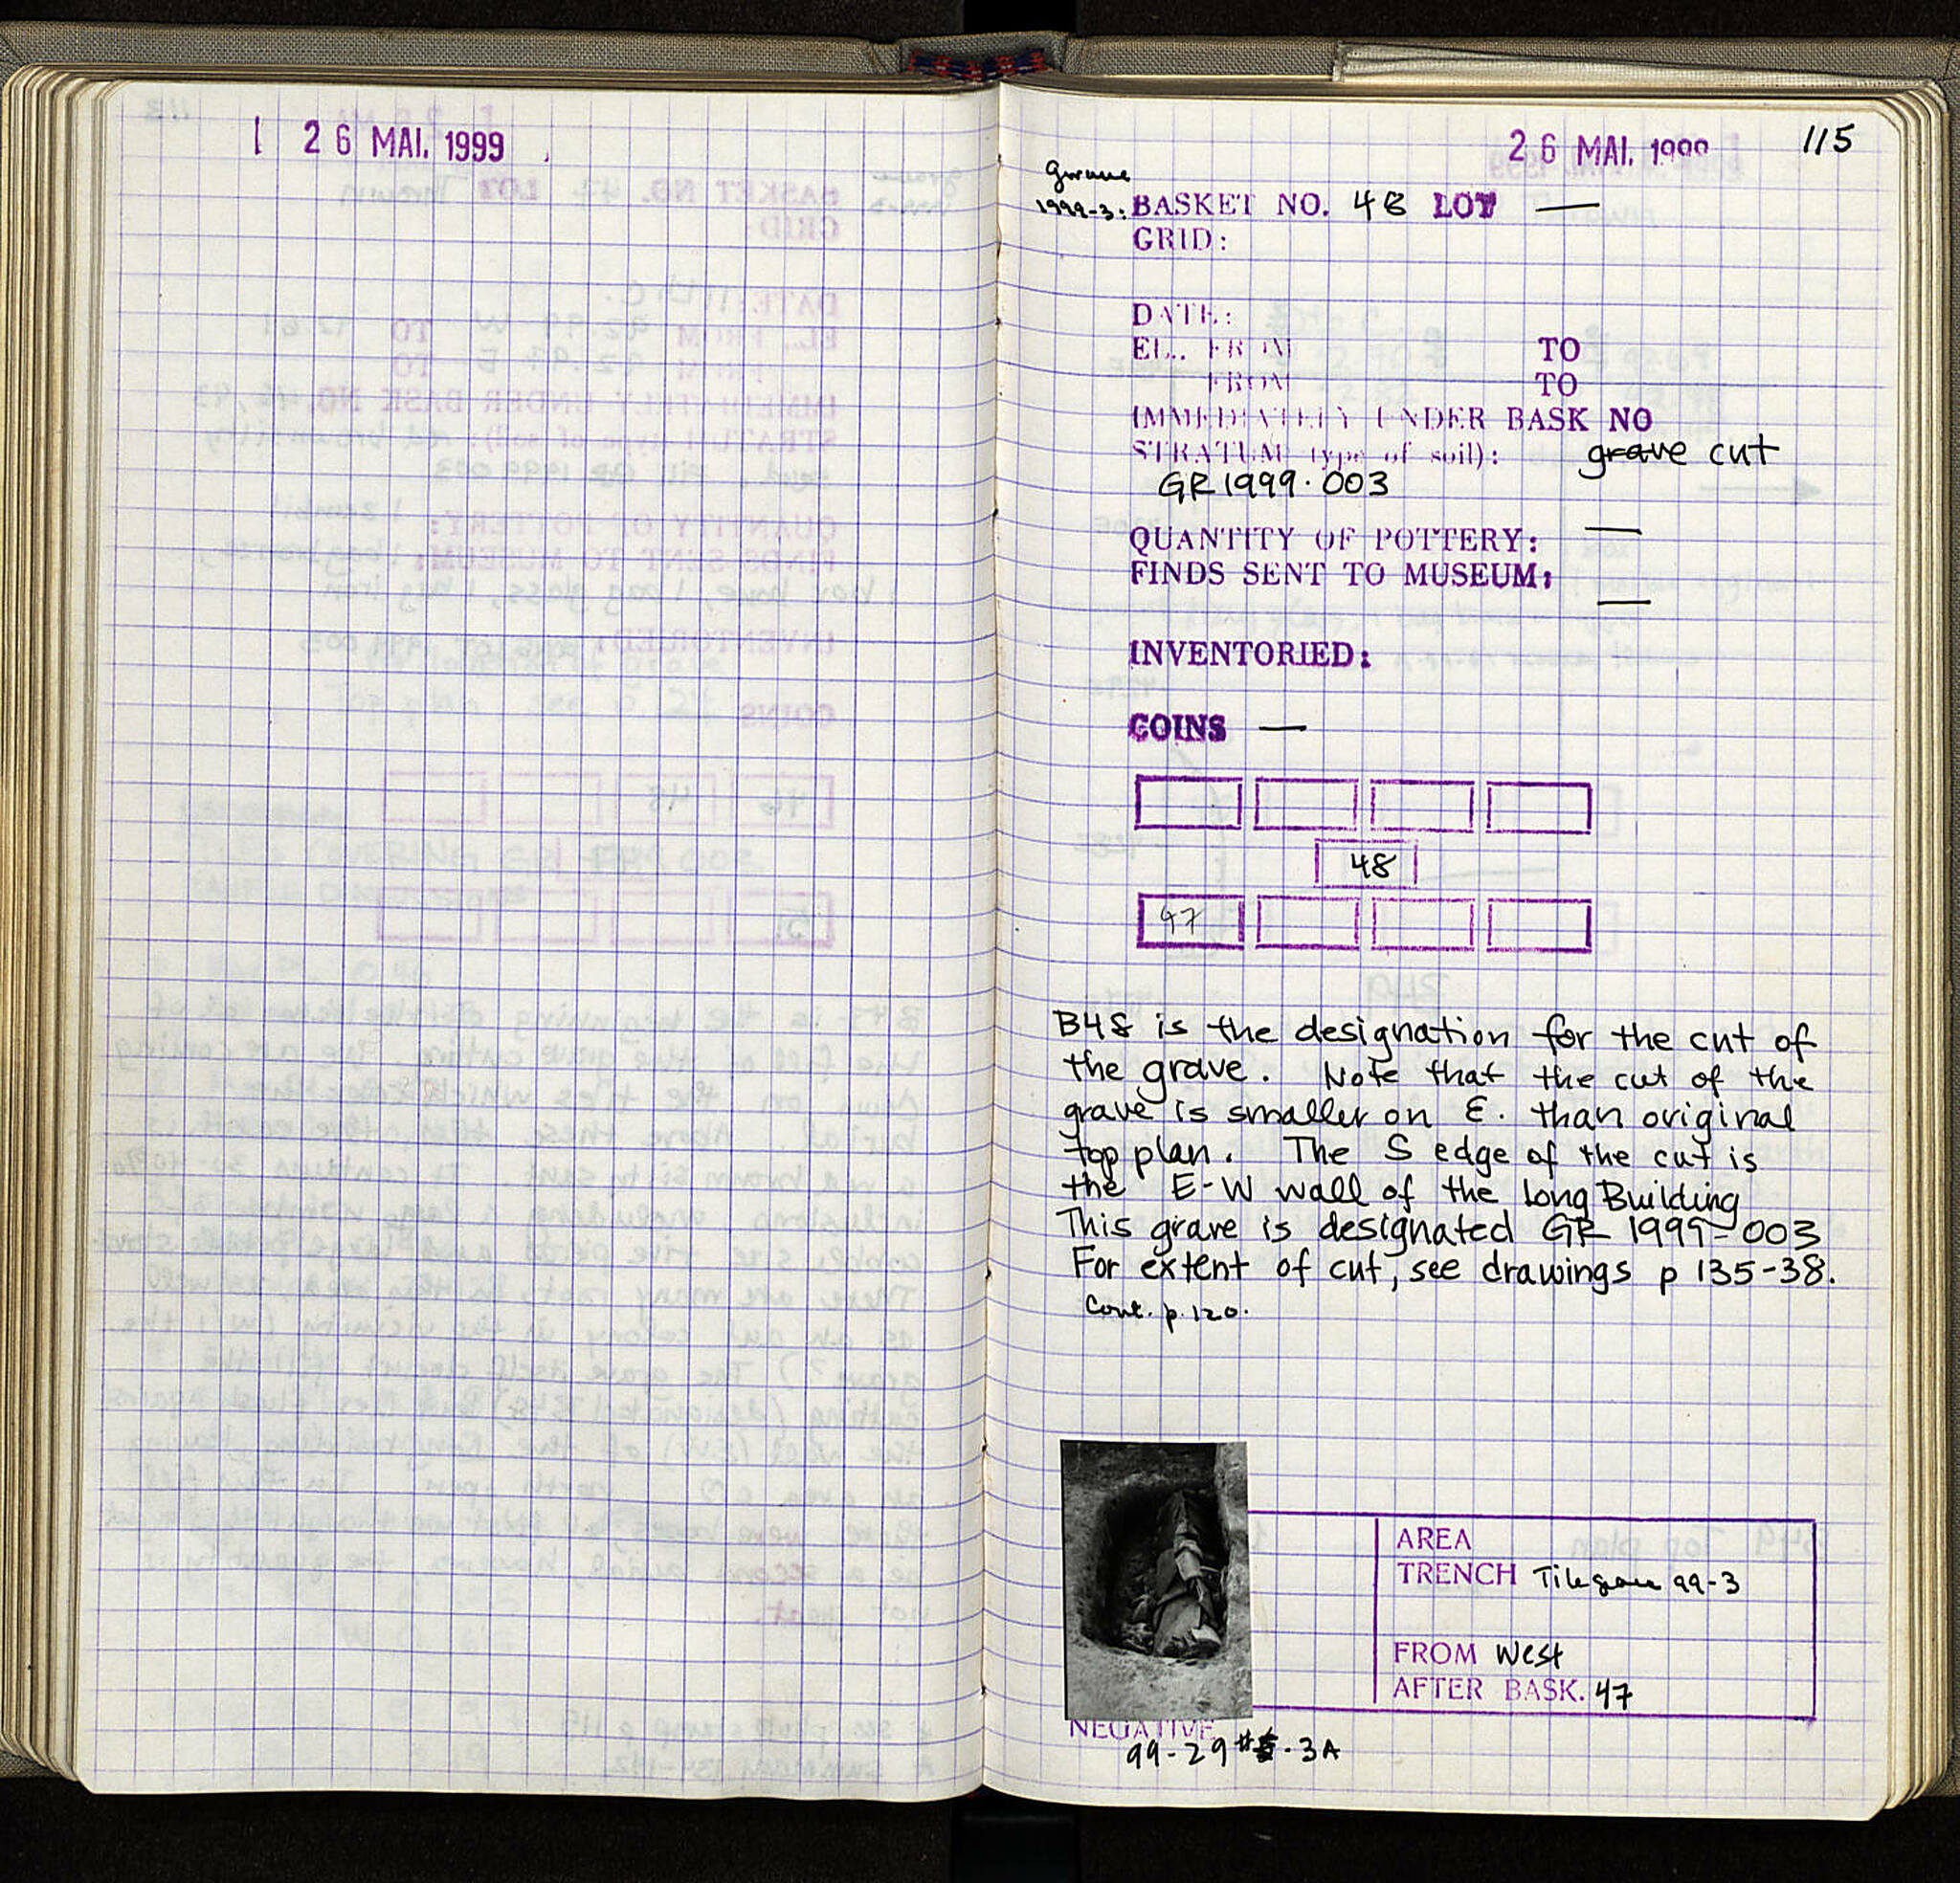 26 MAI. 1999
26 MAI. 1999
115
grave
1999-3: BASKET NO. 48 LOT —
GRID:
DATE:
EL. FROM TO
FROM TO
IMMEDIATELY UNDER BASK NO
STRATUM (type of soil): grave cut
GR 1999.003
QUANTITY OF POTTERY: —
FINDS SENT TO MUSEUM: —
INVENTORIED:
COINS —
48
47
B48 is the designation for the cut of
the grave. Note that the cut of the
grave is smaller on E. than original
top plan. The S edge of the cut is
the E-W wall of the long Building
This grave is designated GR 1999-003
For extent of cut, see drawings p 135-38.
Cont. p. 120.
AREA
TRENCH Tile grave 99-3
FROM West
AFTER BASK. 47
NEGATIVE
99-29 # . 3A